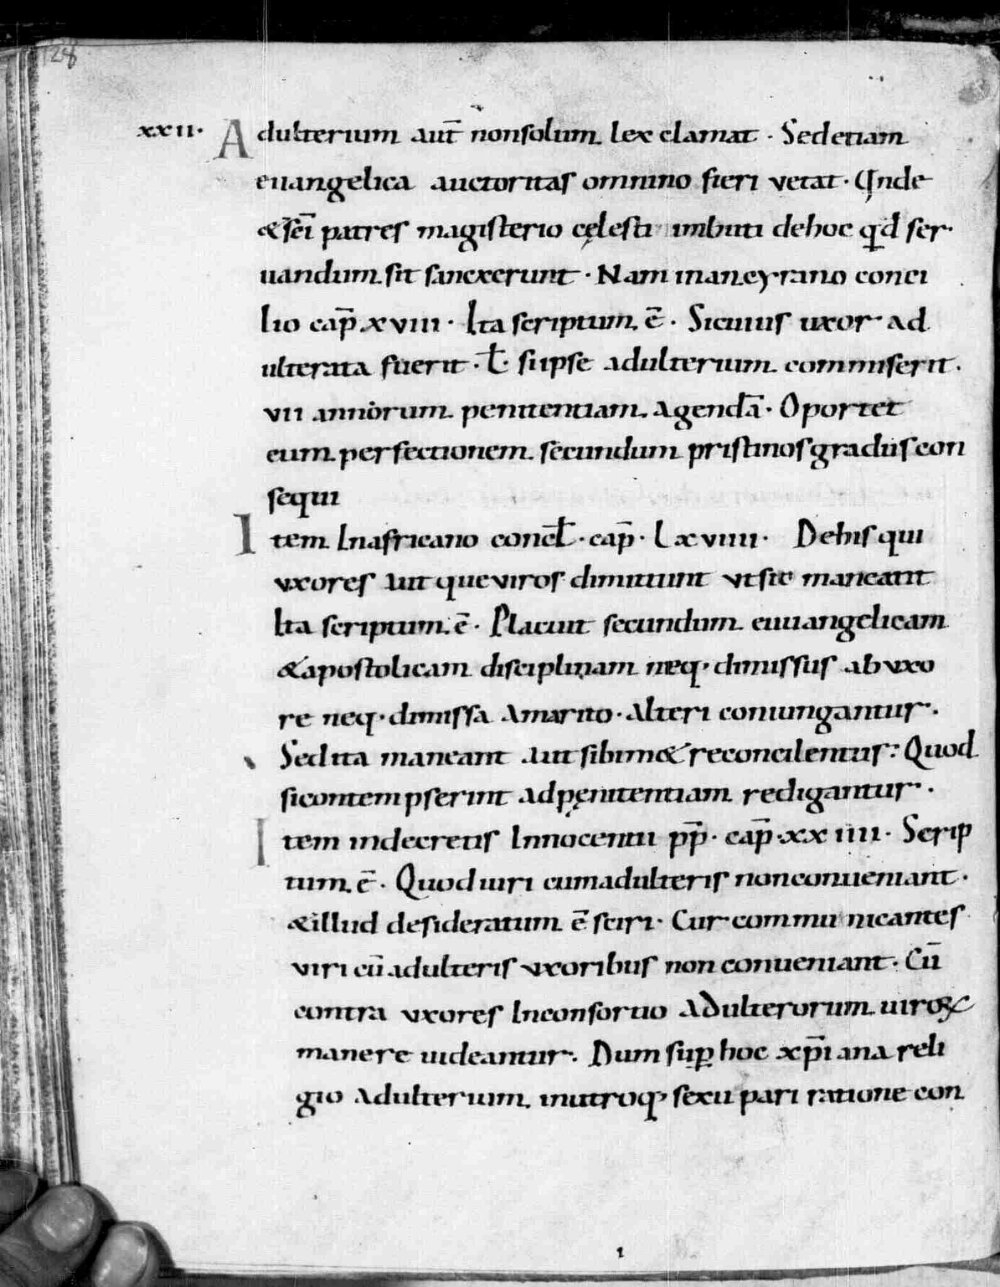 128
xxii· Adulterium aut̄ nonsolum lex clamat · Sed etiam
euangelica auctoritas omnino fieri vetat · Unde
&sc̄i patres magisterio cęlesti imbuti dehoc qd̄ ser·
uandum sit sanxerunt · Nam inancyrano conci
lio cap̄ xviii · Ita scriptum ē · Sicuius uxor ad
ulterata fuerit · ł · siipse adulterium commiserit ·
vii annorum penitentiam agendā · Oportet
eum perfectionem secundum pristinos gradus con
sequi
Item Inafricano conc̄l · cap̄ · Lxviiii · Dehis qui
vxores aut que viros dimittunt vt sic maneant
Ita scriptum ē · Placuit secundum euuangelicam
&apostolicam disciplinam neq· dimissus ab vxo
re neq· dimissa amarito · alteri coniungantur ·
Sed ita maneant aut sibim& reconcilientur : Quod
sicontempserint ad pęnitentiam redigantur ·
Item indecretis Innocentii pp̄ · cap̄ · xxiiii · Scrip
tum ē · Quod uiri cum adulteris non conueniant ·
&illud desideratum ē sciri · Cur communicantes
viri cū adulteris vxoribus non conueniant · Cū
contra vxores Inconsortio adulterorum uiroꝝ
manere uideantur · Dum sup̱ hoc xp̄iana reli
gio adulterium inutroq· sexu pari ratione con